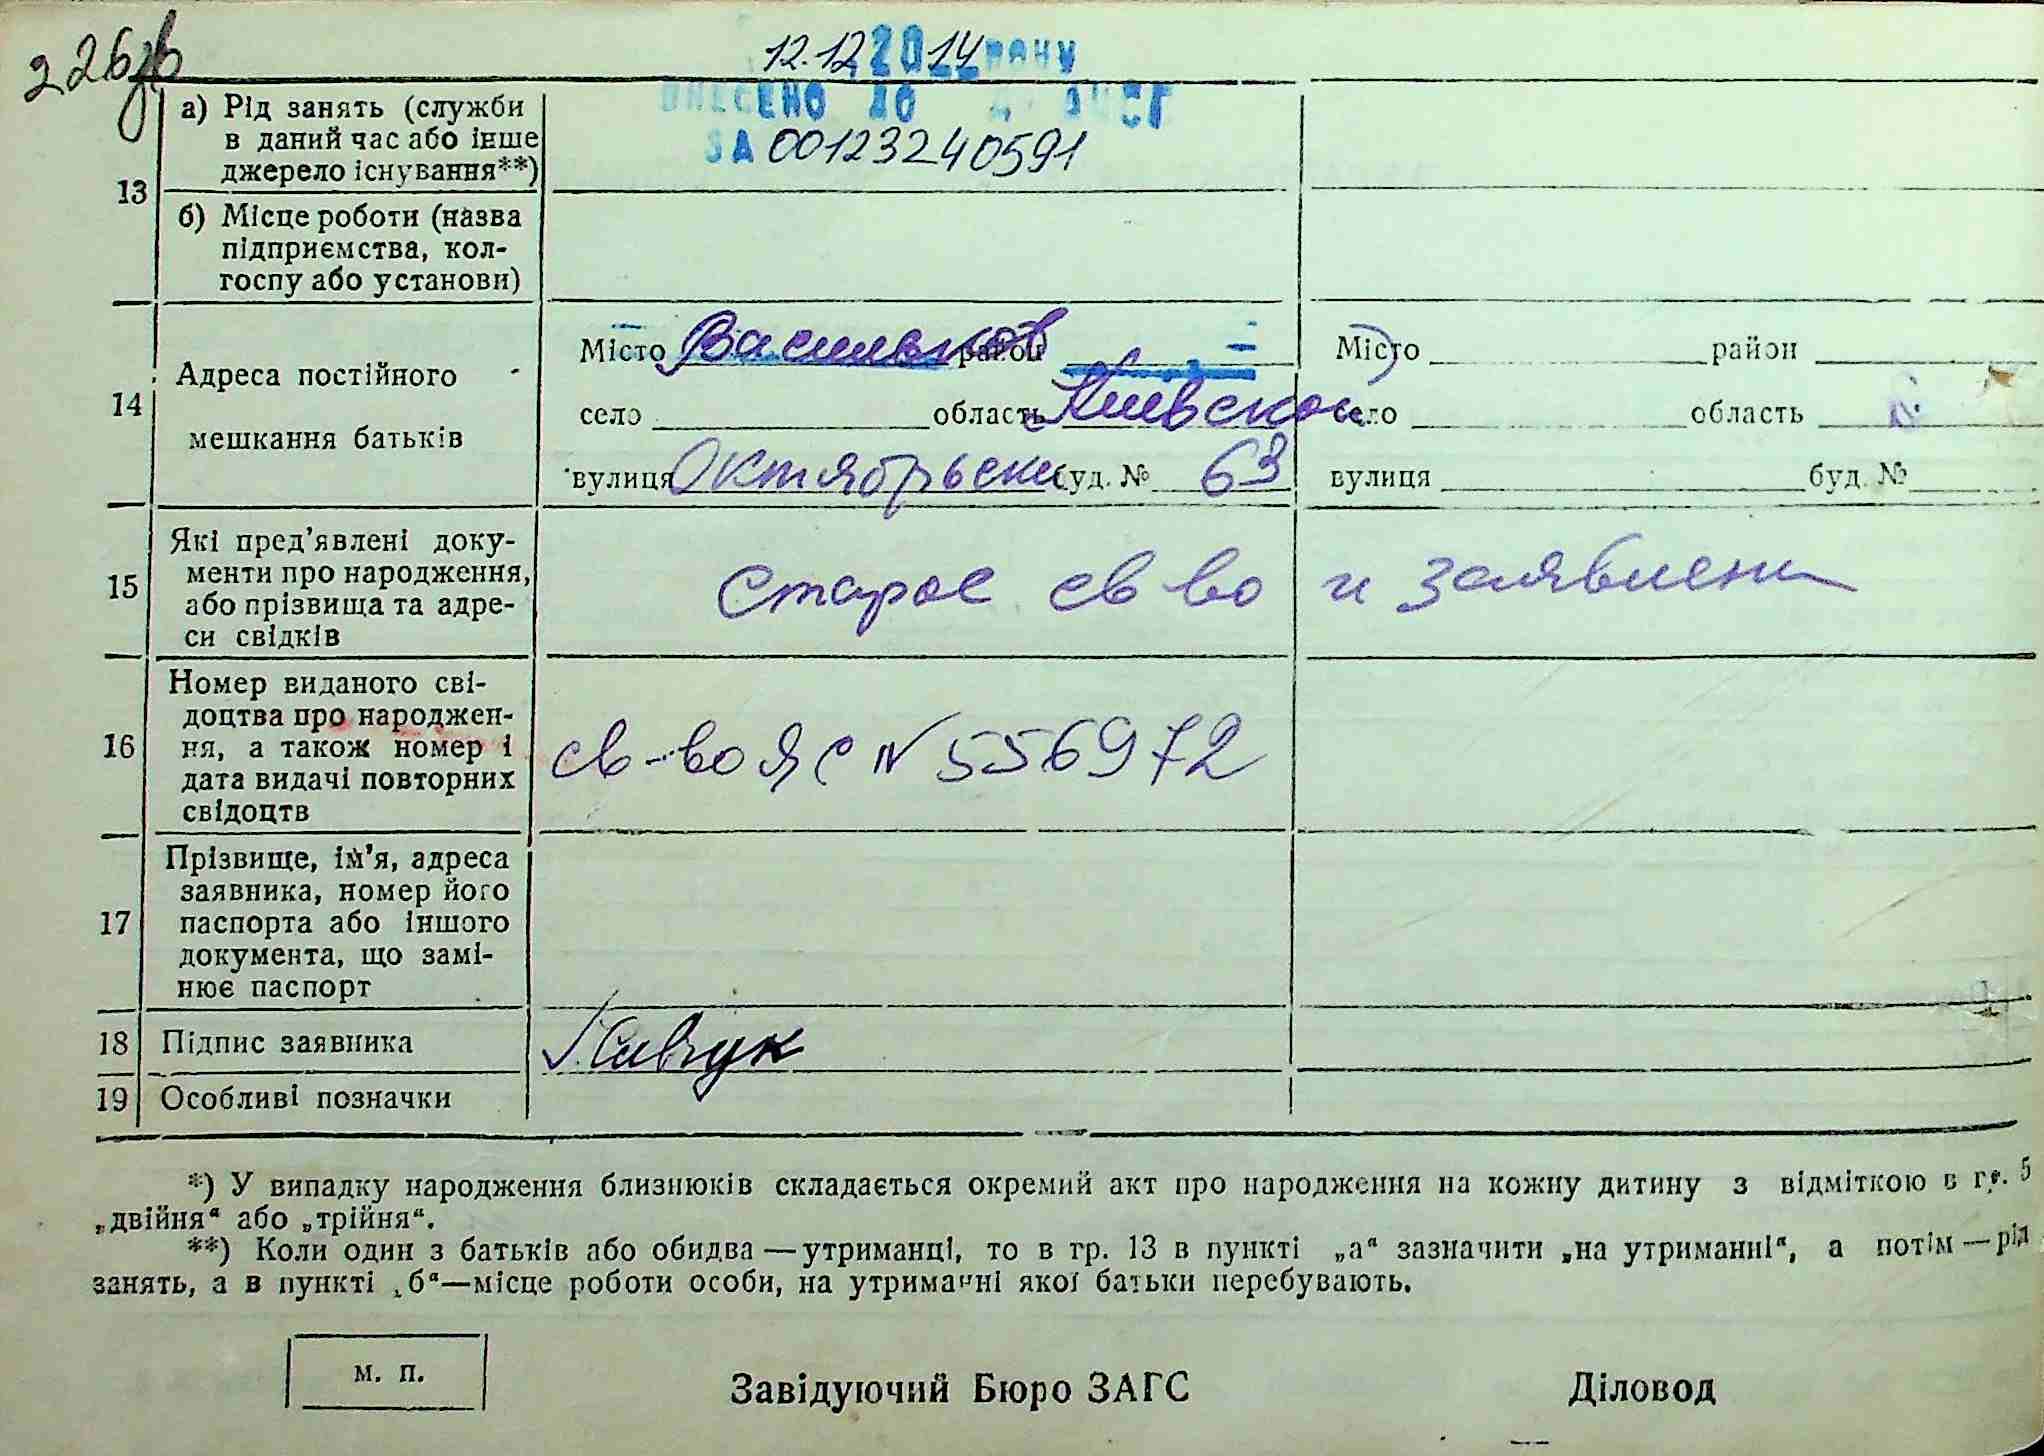 226зв
12.12.2014 року
ВНЕСЕНО ДО ДРАЦСГ
ЗА 00123240591
13
а) Рід занять (служби
в даний час або інше
джерело існування**)
б) Місце роботи (назва
підприємства, кол-
госпу або установи)
14
Адреса постійного
мешкання батьків
Місто Васильков район
село область Киевской
вулиця Октябрьска буд. № 63
Місто район
село область
вулиця буд. №
15
Які пред’явлені доку-
менти про народження,
або прізвища та адре-
си свідків
старое св во и заявлени
16
Номер виданого сві-
доцтва про народжен-
ня, а також номер і
дата видачі повторних
свідоцтв
св-во ЯС № 556972
17
Прізвище, ім’я, адреса
заявника, номер його
паспорта або іншого
документа, що замі-
нює паспорт
18 Підпис заявника
19 Особливі позначки
*) У випадку народження близнюків складається окремий акт про народження на кожну дитину з відміткою в гр. 5
„двійня“ або „трійня“.
**) Коли один з батьків або обидва — утриманці, то в гр. 13 в пункті „а“ зазначити „на утриманні“, а потім — рід
занять, а в пункті „б“—місце роботи особи, на утриманні якої батьки перебувають.
м. п.
Завідуючий Бюро ЗАГС Діловод